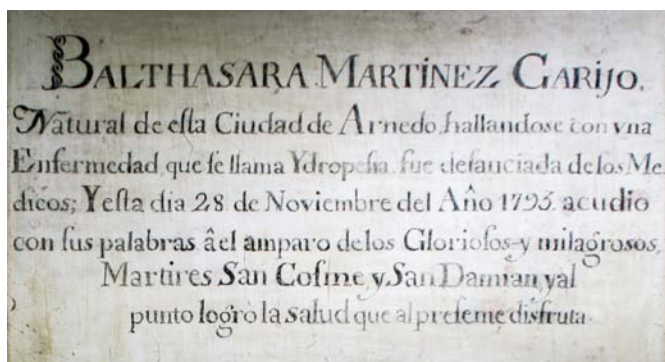 BALTHASARA MARTÍNEZ GARIJO.
Natural de esta Ciudad de Arnedo hallandose con vna
Enfermedad, que se llama Ydropesia. fue desauciada de los Me
dicos; Y esta dia 28 de Noviembre del Año 1793. acudio
con sus palabras â el amparo de los Gloriosos y milagrosos,
Martires San Cosme, y San Damian, y al
punto logrò la salud que al presente disfruta.